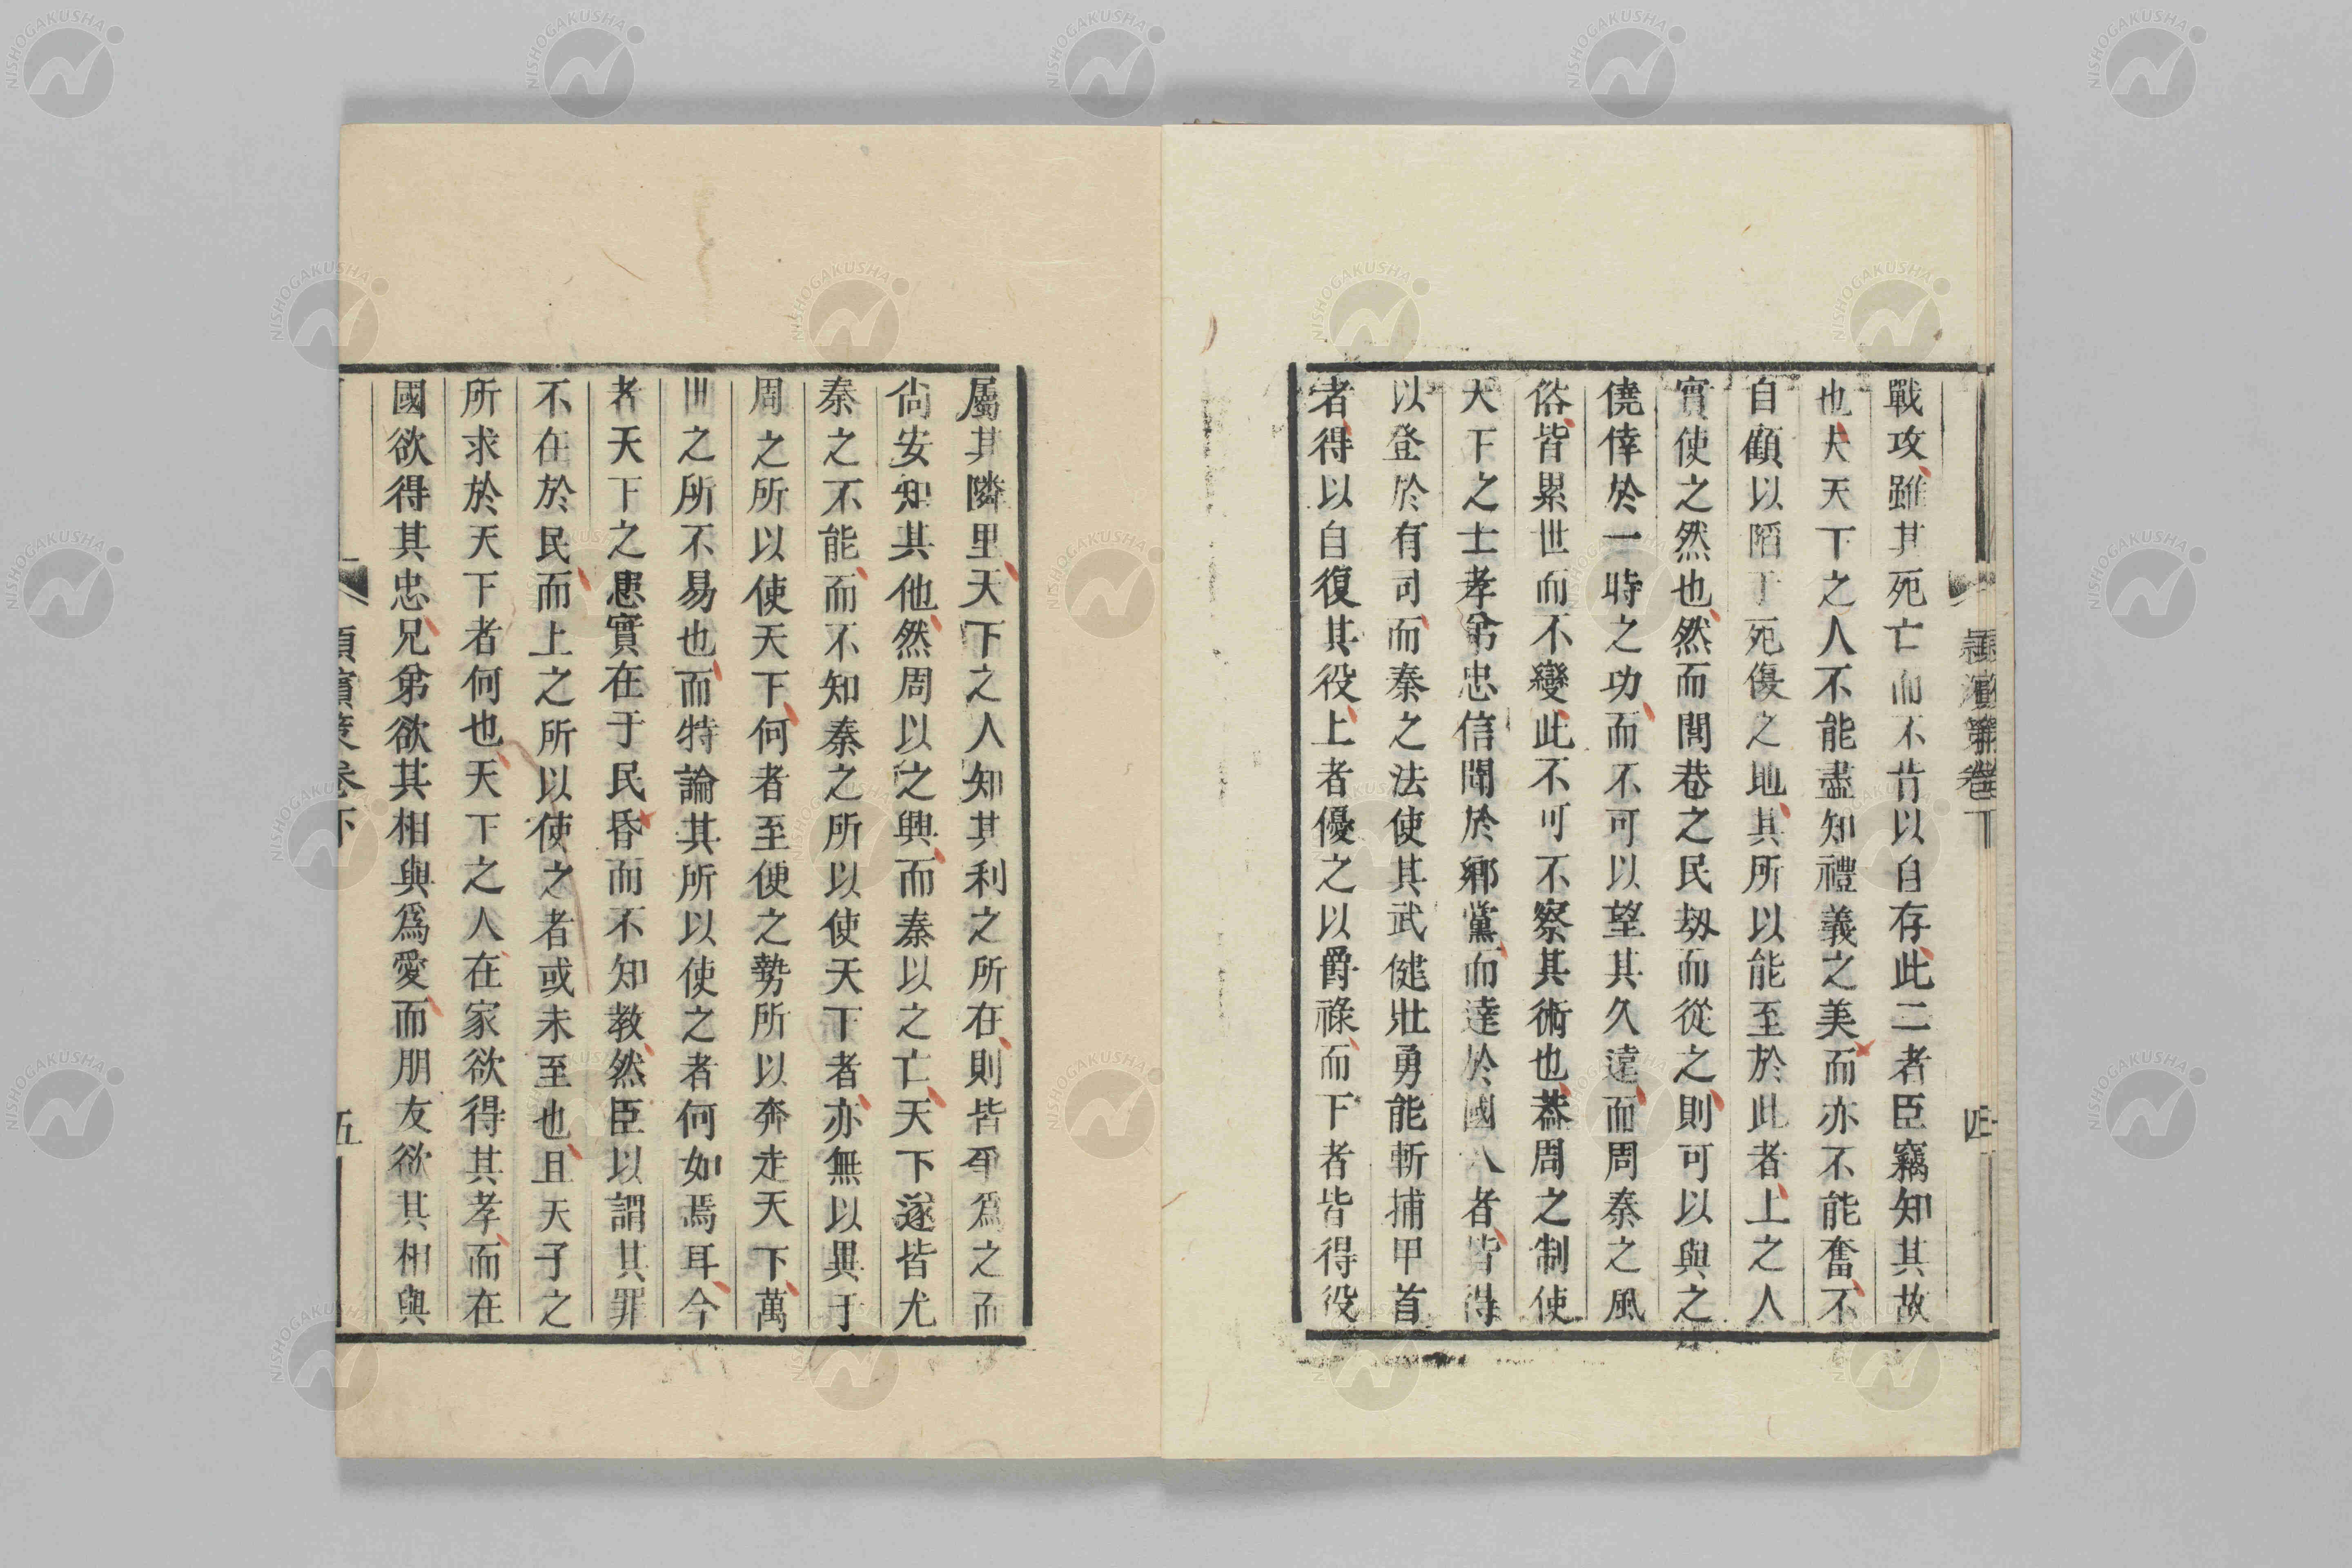 戰攻雖其死亡而不肯以自存此二者臣竊知其故
也夫天下之人不能盡知禮義之美而亦不能奮不
自顧以陷于死傷之地其所以能至於此者上之人
實使之然也然而閭巷之民刼而從之則可以與之
僥倖於一時之功而不可以望其久遠而周秦之風
俗皆累世而不變此不可不察其術也葢周之制使
天下之士孝弟忠信聞於鄉黨而達於國人者皆得
以登於有司而秦之法使其武健壯勇能斬捕甲首
者得以自復其役上者優之以爵祿而下者皆得役
屬其隣里天下之人知其利之所在則皆爭爲之而
尙安知其他然周以之興而秦以之亡天下遂皆尤
秦之不能而不知秦之所以使天下者亦無以異于
周之所以使天下何者至便之勢所以奔走天下萬
世之所不易也而特論其所以使之者何如焉耳今
者天下之患實在于民昏而不知教然臣以謂其罪
不在於民而上之所以使之者或未至也且天子之
所求於天下者何也天下之人在家欲得其孝而在
國欲得其忠兄弟欲其相與爲愛而朋友欲其相與
潁濱策卷下
四
潁濱策卷下
五
NISHOGAKUSHA